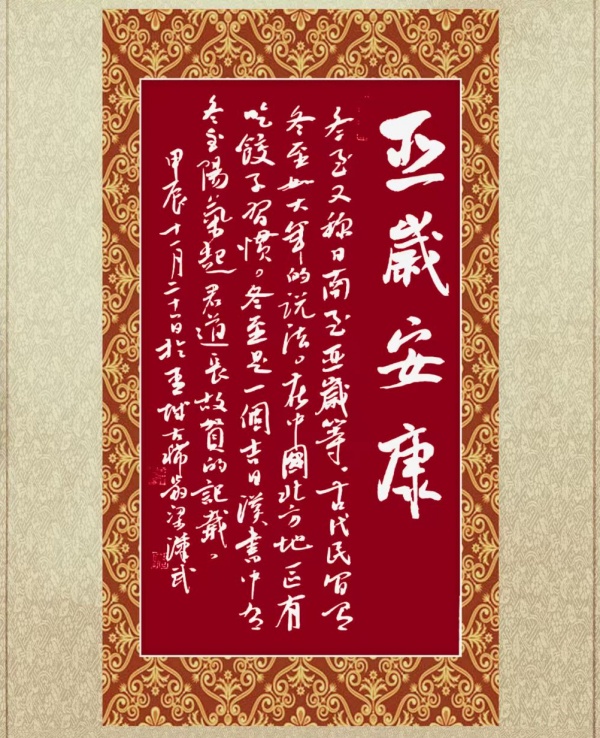 亚歲安康
冬至又称日南至亚歲等，古代民间有
冬至如大年的说法。在中國北方地区有
吃餃子習惯。冬至是一個吉日漢書中有
冬至陽氣起君道長故賀的記載。
甲辰十一月二十一日於 城古稀翁梁 武